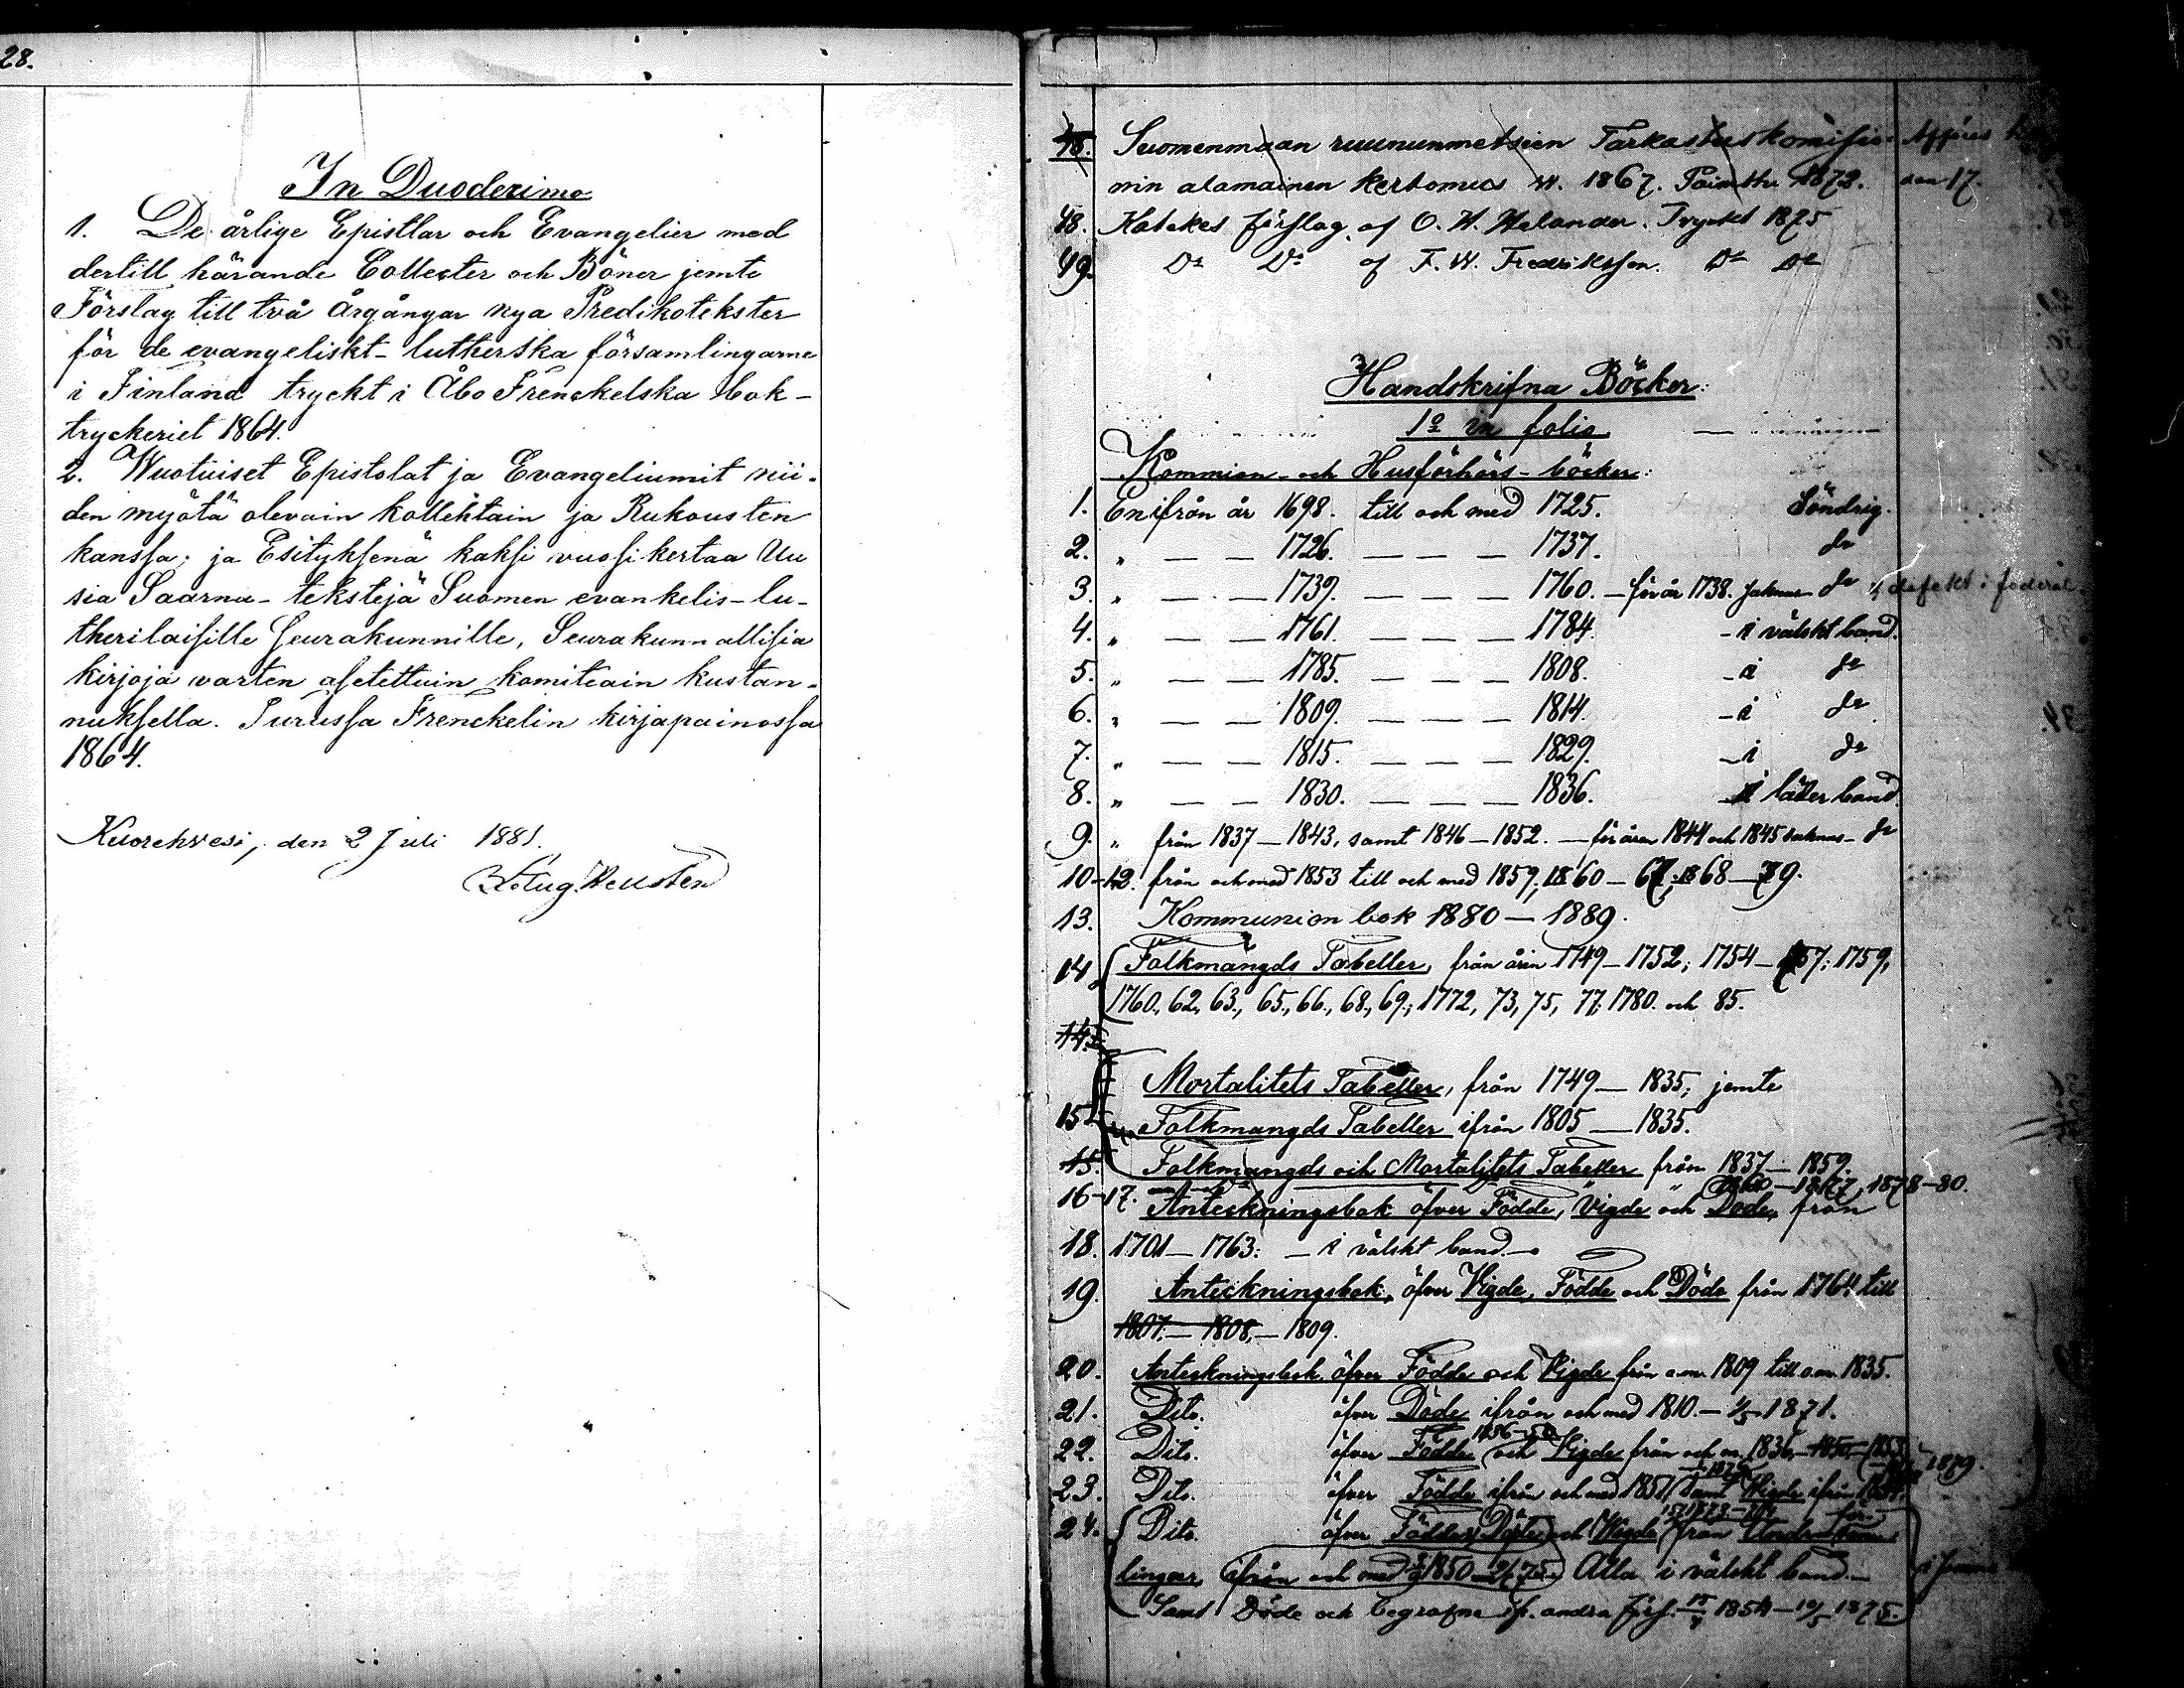 28.
In Duodecimo
1. De årlige Epistlar och Evangelier med
dertill hörande Collecter och Böner jemte
Förslag till två Årgångar nya Predikotekster
för de evangeliskt-lutherska församlingarne
i Finland tryckt i Åbo Frenckelska bok-
tryckeriet 1864.
2. Wuotuiset Epistolat ja Evangeliumit nii-
den myötä olevain kollektain ja Rukousten
kanssa; ja Esityksenä kaksi vuosikertaa Uu
sia Saarna-tekstejä Suomen evankelis-lu-
therilaisille Seurakunnille, Seurakunnallisia
kirjoja varten asetettuin komiteain kustan-
nuksella. Turussa Frenckelin kirjapainossa
1864.
Kuorehvesi, den 2 Juli 1881.
48. Suomenmaan ruununmetsien Tarkastuskomisio- Afföres
nin alamainen kertomus v. 1867. Painettu 1872. den 17.
48. Katekes förslag af O. H. Helander. Tryckt 1875
49. Do Do af F. W. Fredriksson. Do Do
Handskrifna Böcker:
1o in folio
Kommion- och Husförhörs-böcker:
1. En ifrån år 1698. till och med 1725. Söndrig.
2. „ — — 1726. — — — 1737. do
3. „ — — 1739. — — — 1760. — för år 1738. saknas do defekt i
4. „ — — 1761. — — — 1784. - i välskt band.
5. „ — — 1785. — — — 1808. - i do
6. „ — — 1809. — — — 1814. - i do
7. „ — — 1815. — — — 1829. - i do
8. „ — — 1830. — — — 1836. i läder band
9. „ från 1837 — 1843, samt 1846 — 1852. — för åren 1844 och 1845 saknas - do
10-12. från och med 1853 till och med 1859; 1860 — 67; 1868 — 79.
13. Kommunion bok 1880 — 1889.
14 Folkmängds Tabeller, från åren 1749 — 1752; 1754 — 1757; 1759,
1760, 62, 63, 65, 66, 68, 69; 1772, 73, 75, 77, 1780. och 85.
14.
Mortalitets Tabeller, från 1749 — 1835; jemte
15 Folkmängds Tabeller ifrån 1805 — 1835.
15. Folkmängds och Mortalitets Tabeller från 1837 — 1859.
16-17. 1860 — 1877, 1878-80.
Anteckningsbok öfver Födde, Vigde och Döde, från
18. 1701 — 1763: — i välskt band. —
19. Anteckningsbok, öfver Vigde, Födde och Döde från 1764 till
1807. — 1808, — 1809.
20. Anteckningsbok öfver Födde och Vigde från o.m. 1809 till o.m. 1835.
21. Dito. öfver Döde ifrån och med 1810. — 1871.
22. Dito. öfver Födde och Vigde från och m. 1836 — 1850, — 1853 1879.
23. Dito. öfver Födde ifrån och med 1851, samt Vigde ifrån
24. Dito. öfver Födde, Döde och Vigde från
lingar, ifrån och med 1850 — 75. Alla i välskt band —
Samt Döde och begrafne ifr. andra förs. 1854 — 1875.